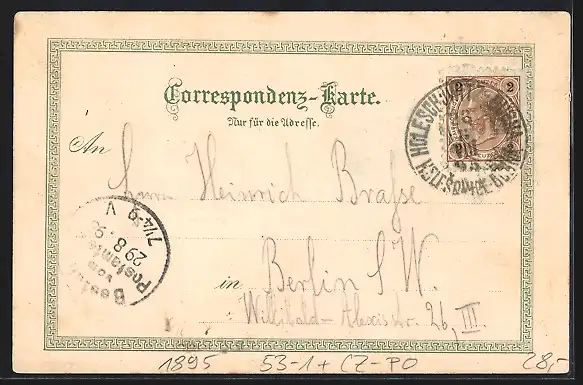 2 2
Correspondenz-Karte.
Nur für die Adresse.
An
Herrn Heinrich Brasse
in Berlin S. W.
Willibald-Alexisstr. 26, III.
Bestellt
vom
Postamte
29 8. 95
7¼-9 V
1895 53-1+ CZ-PO €8,-